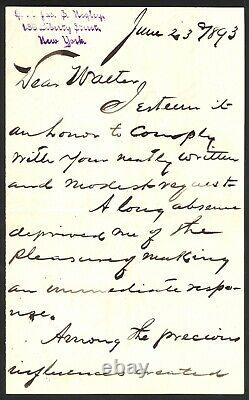 Gen. Jas. S. Negley,
Liberty Street,
New York.
June 23d 1893
Dear Walter,
I esteem it
an honor to comply
with your neatly written
and modest request.
A long absence
deprived me of the
pleasure of making
an immediate respo-
nse.
Among the precious
influences created